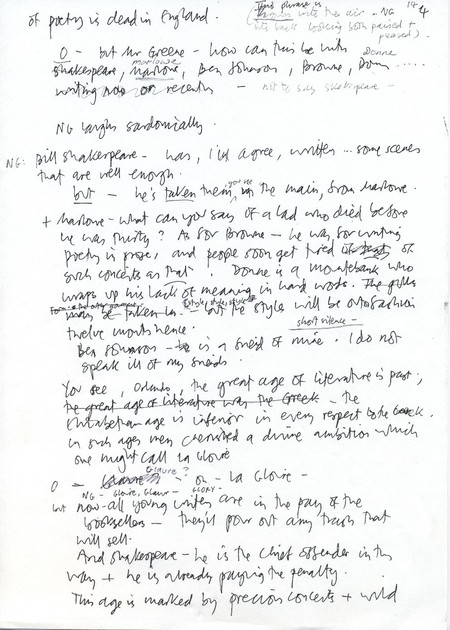 This phrase is 17 4
thrown into the air - NG
sits back looking both pained +
pleased).
of poetry is dead in England.
O - but Mr Greene - how can this be with
Shakespeare, Marlowe, Ben Johnson, Browne, Donne .....
writing now or recently - not to say Shakespeare -
NG laughs sardonically.
NG: Bill Shakespeare - has, I'll agree, written ... some scenes
that are well enough.
but - he's taken them, in the main, from Marlowe.
+ Marlowe - what can you say of a lad who died before
he was thirty? As for Browne - he was for writing
poetry in prose, and people soon get tired of
such conceits as that. Donne is a mountebank who
wraps up his lack of meaning in hard words. The gulls
may be taken in - but the style will be out of fashion
twelve months hence.
short silence -
Ben Johnson - is a friend of mine. I do not
speak ill of my friends.
You see, Orlando, the great age of literature is past;
the great age of literature was the Greek - the
Elizabethan age is inferior in every respect to the Greek.
In such ages men cherished a divine ambition which
one might call La Gloire
Glaure?
O - Glaure - oh - La Gloire -
NG - Gloire, Glaur - GLORY -
but now all young writers are in the pay of the
booksellers - they'll pour out any trash that
will sell.
And Shakespeare - he is the chief offender in this
way + he is already paying the penalty.
This age is marked by precious conceits + wild